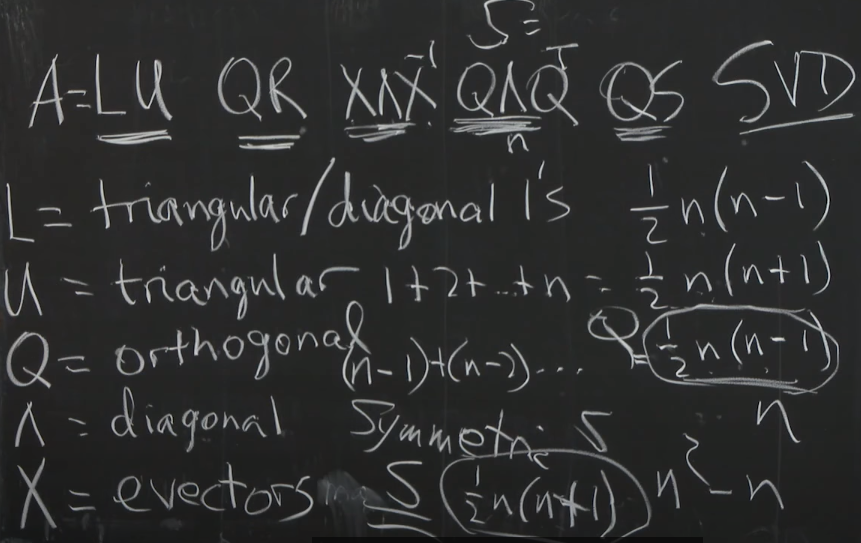 S=
A=LU QR XΛX⁻¹ QΛQᵀ QS SVD
n
L= triangular/diagonal 1's ½n(n-1)
U = triangular 1+2+..+n = ½n(n+1)
Q= orthogonal (n-1)+(n-2)... Q= ½n(n-1)
Λ = diagonal Symmetric S n
X = evectors S ½n(n+1) n²-n